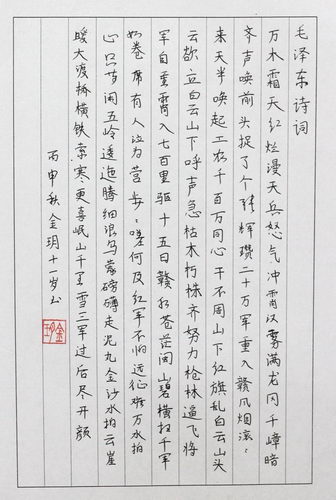 毛泽东诗词
万木霜天红烂漫天兵怒气冲霄汉雾满龙冈千嶂暗
齐声唤前头捉了个张辉瓒二十万军重入赣风烟滚々
来天半唤起工农千百万同心干不周山下红旗乱白云山头
云欲立白云山下呼声急枯木朽株齐努力枪林逼飞将
军自重霄入七百里驱十五日赣水苍茫闽山碧横扫千军
如卷席有人泣为营步々嗟何及红军不怕远征难万水
山只等闲五岭逶迤腾细浪乌蒙磅礴走泥丸金沙水拍云崖
暖大渡桥横铁索寒更喜岷山千里雪三军过后尽开颜
丙申秋金玥十一岁书
金玥